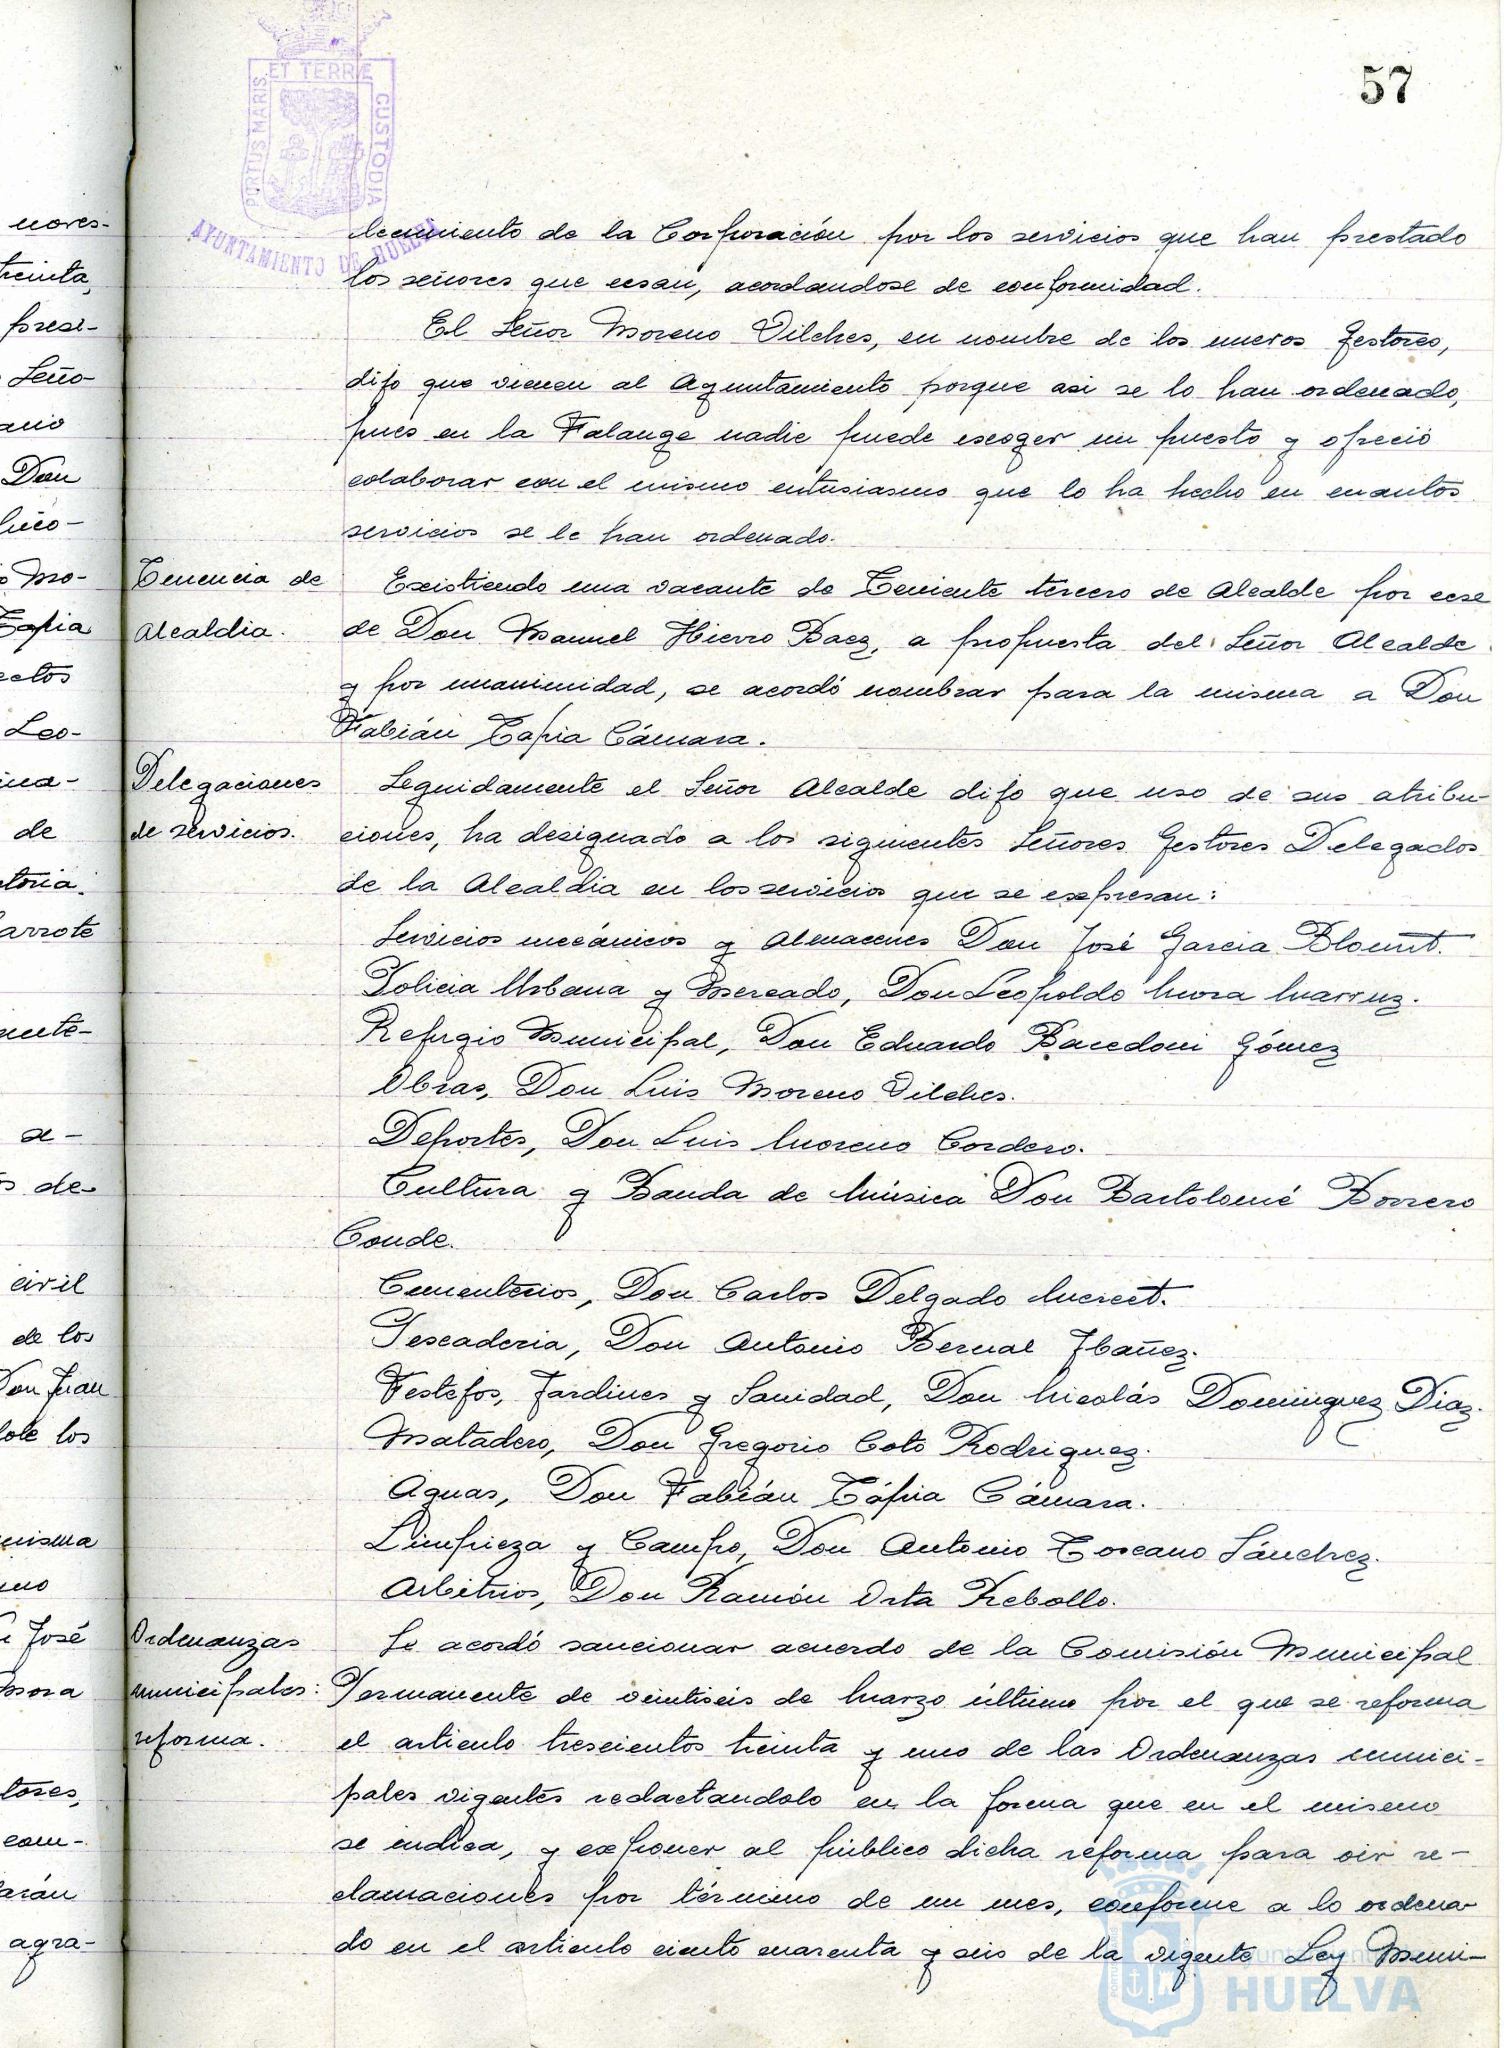 57
PORTUS MARIS ET TERRÆ CUSTODIA
AYUNTAMIENTO DE HUELVA
nores-
treinta,
presi-
Seño-
ario
Don
Mo-
Tapia
ectos
Leo-
ina-
de
toria.
arrote
mente-
a-
s de-
civil
de los
Don Juan
dole los
misma
José
Mora
tores,
com-
arán
agra-
decimiento de la Corporación por los servicios que han prestado
los señores que cesan, acordandose de conformidad.
El Señor Moreno Vilches, en nombre de los nuevos gestores,
dijo que vienen al Ayuntamiento porque asi se lo han ordenado,
pues en la Falange nadie puede escoger un puesto y ofreció
colaborar con el mismo entusiasmo que lo ha hecho en cuantos
servicios se le han ordenado.
Tenencia de
Alcaldia.
Existiendo una vacante de Teniente tercero de Alcalde por cese
de Don Manuel Hierro Baez, a propuesta del Señor Alcalde
y por unanimidad, se acordó nombrar para la misma a Don
Fabián Tapia Cámara.
Delegaciones
de servicios.
Seguidamente el Señor Alcalde dijo que uso de sus atribu-
ciones, ha designado a los siguientes Señores Gestores Delegados
de la Alcaldia en los servicios que se expresan:
Servicios mecánicos y Almacenes Don José Garcia Blount.
Policia Urbana y Mercado, Don Leopoldo Mora Marruz.
Refugio Municipal, Don Eduardo Bacedoni Gómez
Obras, Don Luis Moreno Vilches.
Deportes, Don Luis Moreno Cordero.
Cultura y Banda de Música Don Bartolomé Borrero
Conde.
Cementerios, Don Carlos Delgado Mercet.
Pescaderia, Don Antonio Bernal Ibañez.
Festejos, Jardines y Sanidad, Don Nicolás Dominguez Diaz.
Matadero, Don Gregorio Coto Rodriguez.
Aguas, Don Fabián Tápia Cámara.
Limpieza y Campo, Don Antonio Toscano Sánchez.
Arbitrios, Don Ramón Orta Rebollo.
Ordenanzas
municipales:
reforma.
Se acordó sancionar acuerdo de la Comisión Municipal
Permanente de veintiseis de Marzo último por el que se reforma
el articulo trescientos treinta y uno de las Ordenanzas munici-
pales vigentes redactandolo en la forma que en el mismo
se indica, y exponer al público dicha reforma para oir re-
clamaciones por término de un mes, conforme a lo ordena-
do en el articulo ciento cuarenta y seis de la vigente Ley Muni-
HUELVA